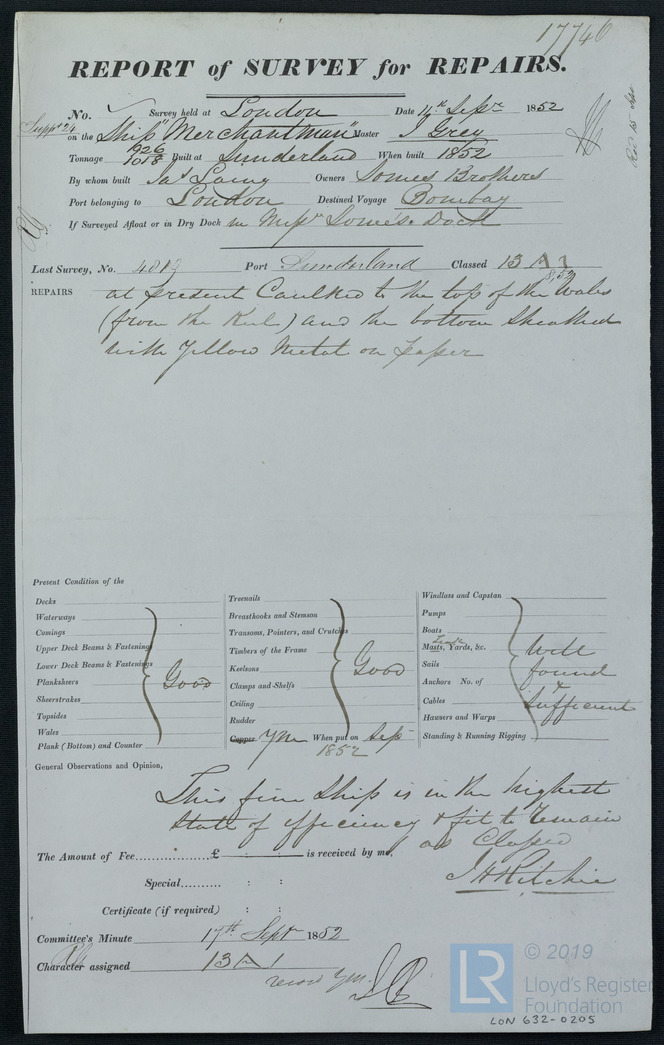 17746
REPORT of SURVEY for REPAIRS.
No. Survey held at London Date 11th Sepr 1852
Suppt 24 on the Ship "Merchantman" Master J Grey
Tonnage 926 1018 Built at Sunderland When built 1852
By whom built Jas Laing Owners Somes Brothers
Port belonging to London Destined Voyage Bombay
If Surveyed Afloat or in Dry Dock in Messrs Somes's Dock
Last Survey, No. Port Sunderland Classed 13 A 1
8,52
REPAIRS at present Caulked to the top of the Wales
(from the Keel) and the bottom Sheathed
with Yellow Metal on paper
Present Condition of the
Decks
Waterways
Comings
Upper Deck Beams & Fastenings
Lower Deck Beams & Fastenings
Planksheers Good
Sheerstrakes
Topsides
Wales
Plank (Bottom) and Counter
Treenails
Breasthooks and Stemson
Transoms, Pointers, and Crutches
Timbers of the Frame
Keelsons Good
Clamps and Shelfs
Ceiling
Rudder
Copper YM When put on Sep
1852
Windlass and Capstan
Pumps
Boats
Masts, Yards, &c. Well
Sails found
Anchors No. of &
Cables Sufficient
Hawsers and Warps
Standing & Running Rigging
General Observations and Opinion,
This fine Ship is in the highest
State of efficiency & fit to remain
as Classed
The Amount of Fee............£ is received by me,
J H Ritchie
Special.......... : :
Certificate (if required) : :
Committee's Minute 17th Septr 1852
Character assigned 13 A 1
record YM
LR © 2019
Lloyd's Register
Foundation
LON 632-0205